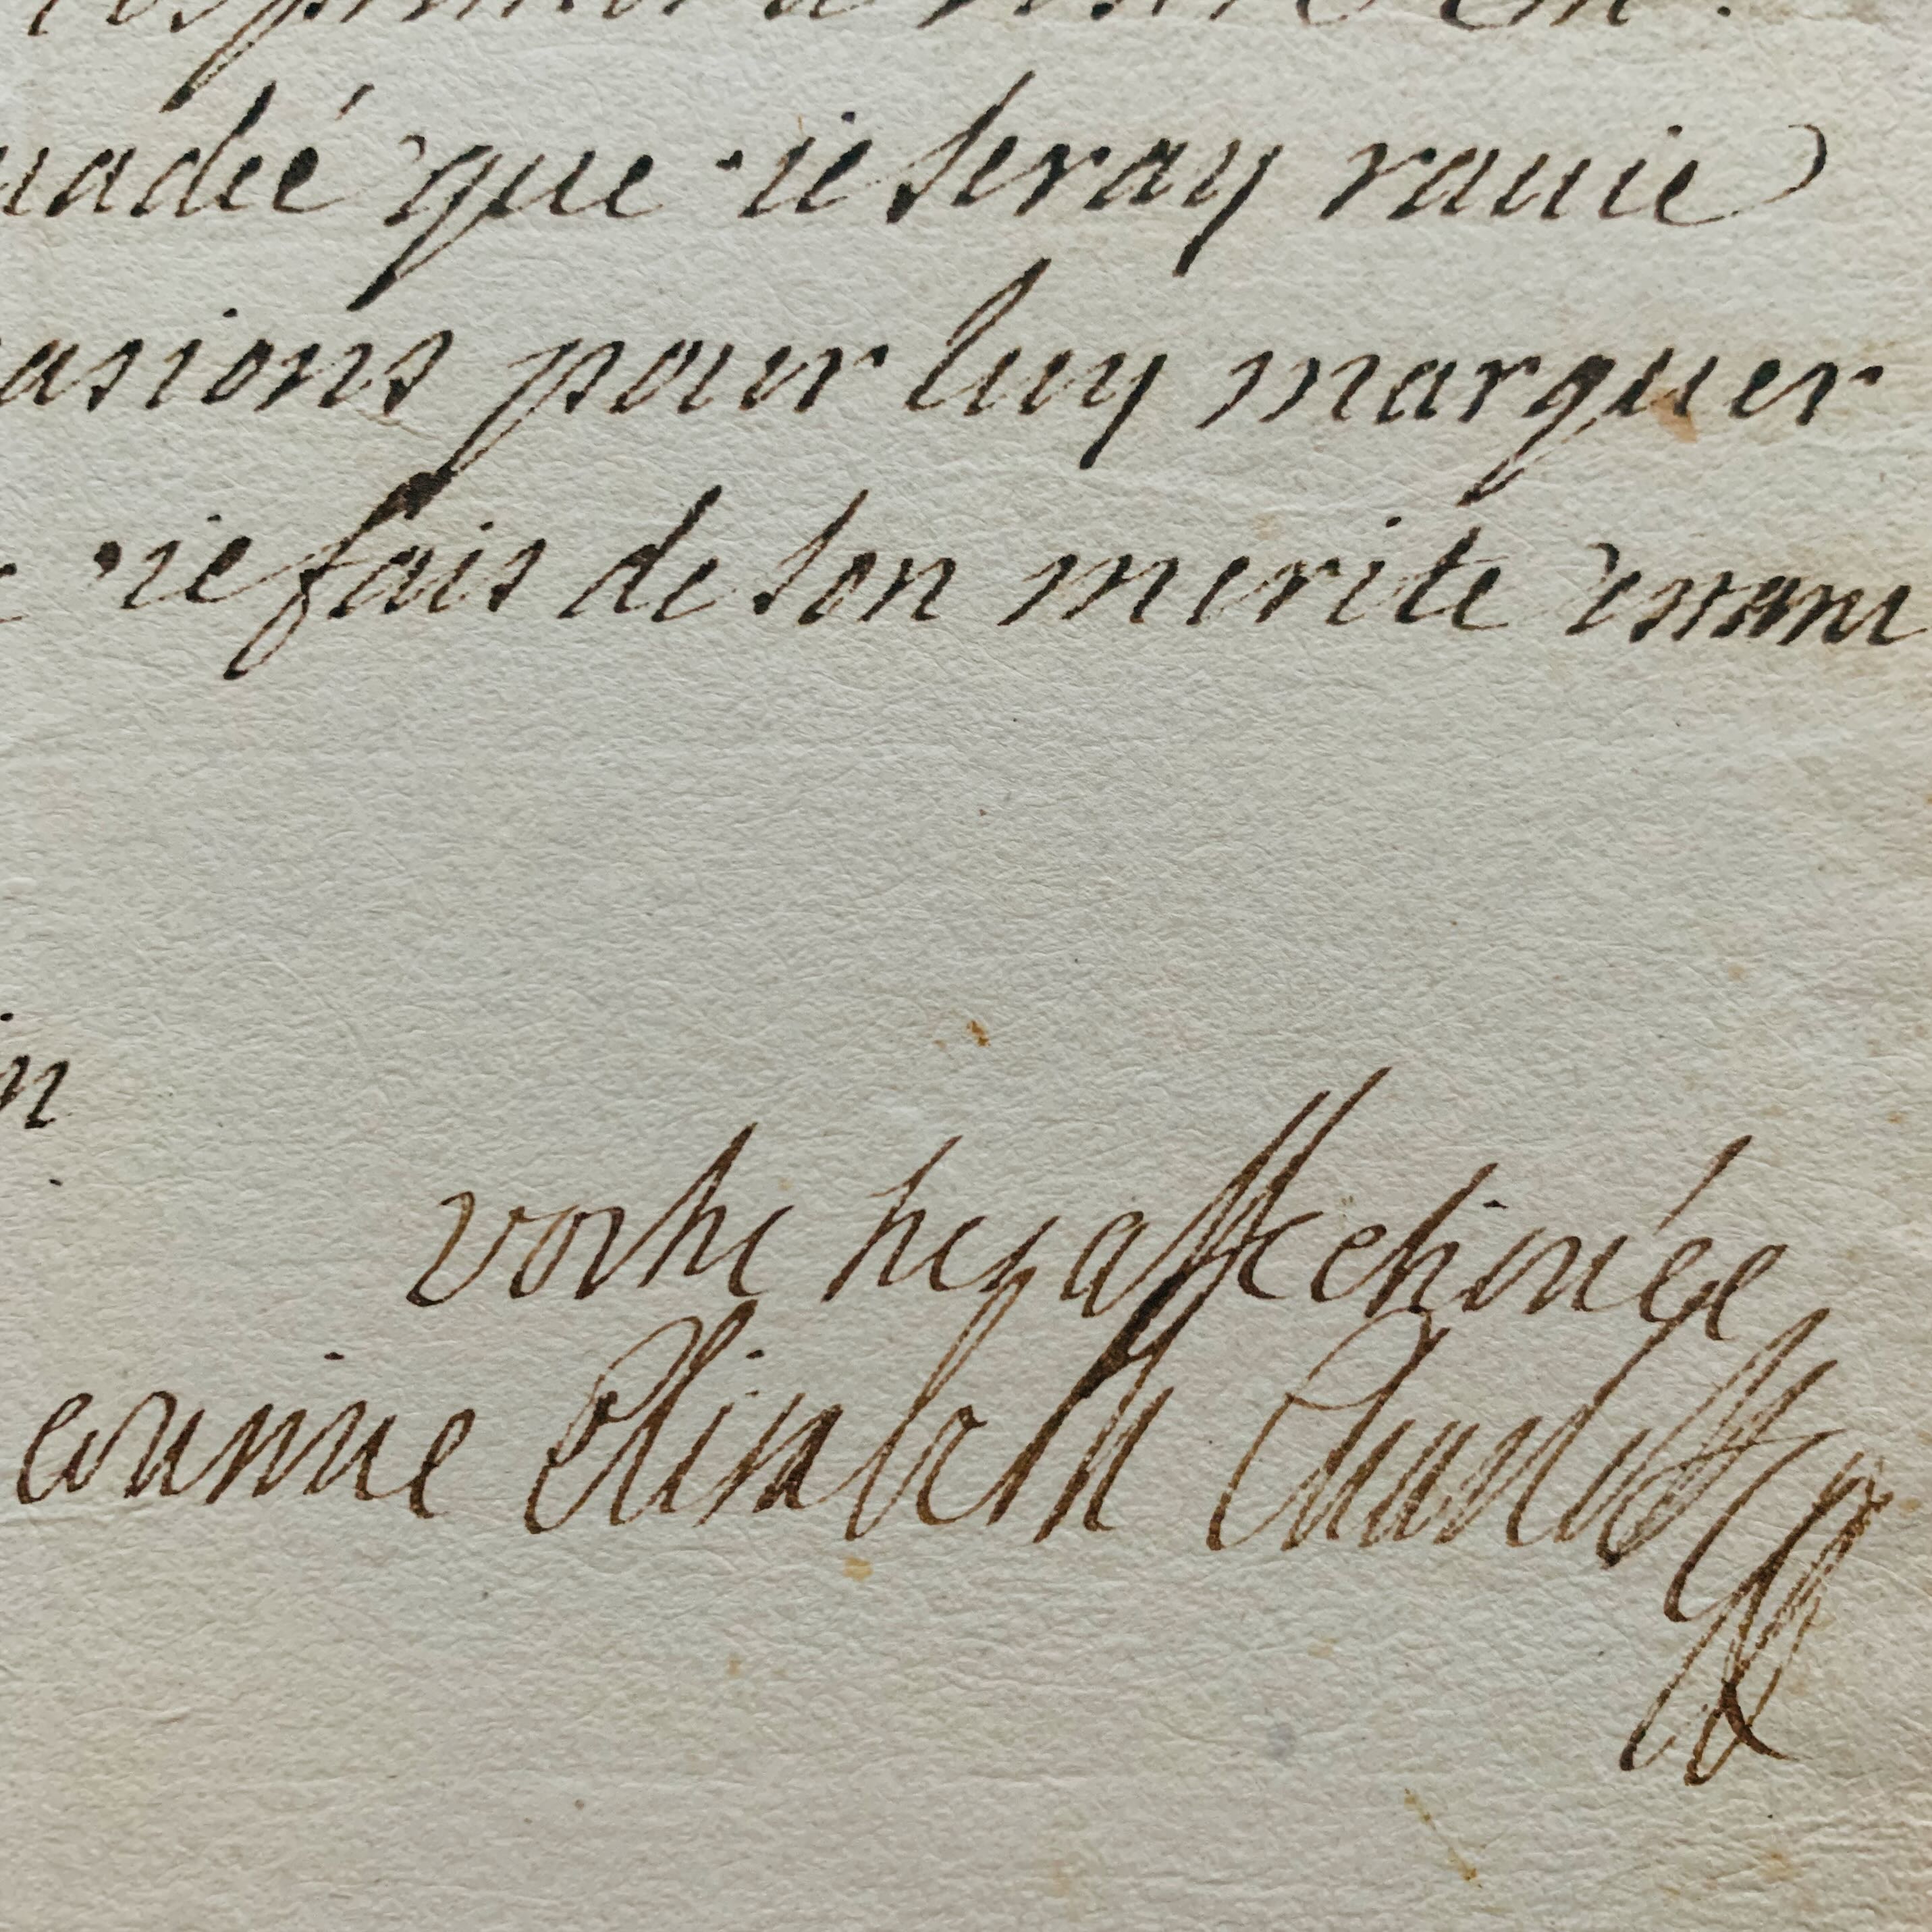 uadeé que ie seray rauie
asions pour luy marquer
ie fais de son merite estant
n
vostre tres affectionée
cousine Elisabeth Charlotte